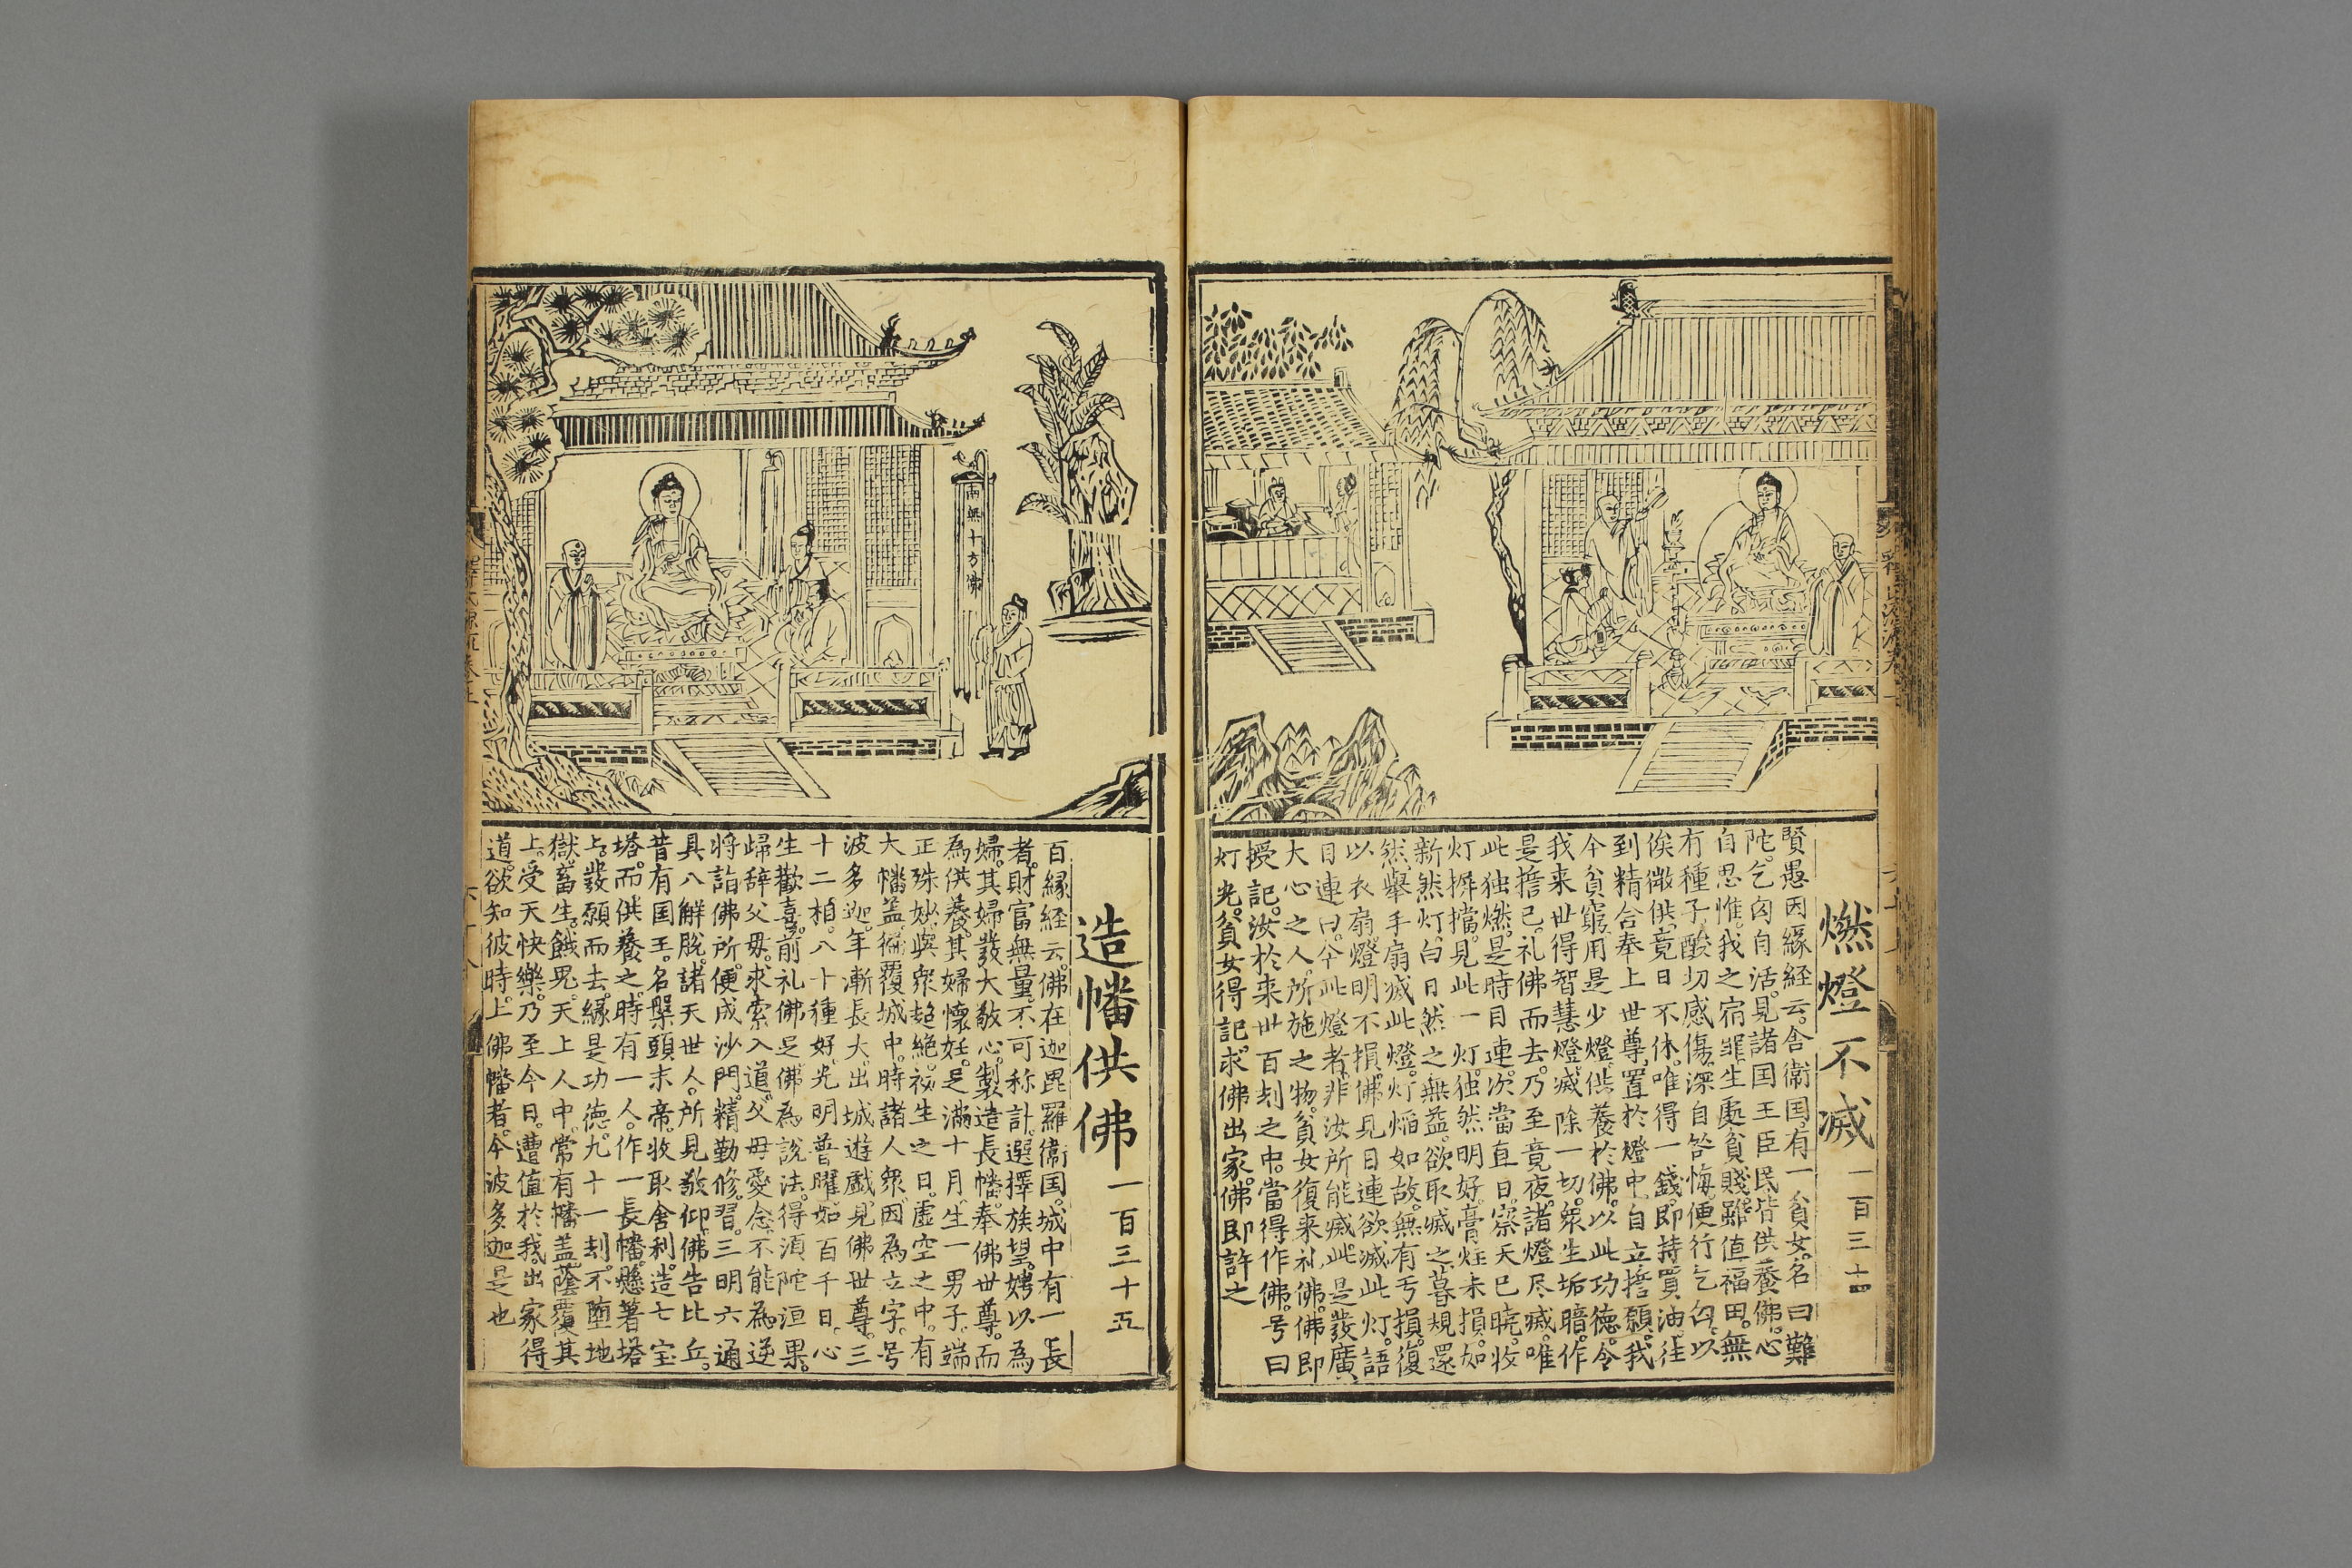 燃燈不滅 一百三十四
賢愚因緣経云。舎衛国。有一貧女。名曰難
陀。乞匃自活。見諸国王臣民皆供養佛。心
自思惟。我之宿罪。生處貧賤。雖值福田。無
有種子。酸切感傷。深自咎悔。便行乞匃。以
俟微供。竟日不休。唯得一錢。即持買油。徃
到精舎奉上世尊。置於燈中。自立擔願。我
今貧窮用是少燈。供養於佛。以此功德。令
我来世得智慧燈。滅除一切。衆生垢暗。作
是擔已。礼佛而去。乃至竟夜。諸燈尽滅。唯
此独燃。是時目連。次當直日。察天已曉。收
灯摒擋。見此一灯。独然明好。膏炷未損。如
新然灯。白日然之無益。欲取滅之。暮規還
然。舉手扇滅此燈。灯焰如故。無有亏損。復
以衣扇。燈明不損。佛見目連欲滅此灯。語
目連曰。今此燈者。非汝所能滅。此是發廣
大心之人。所施之物。貧女復来礼佛。佛即
授記。汝於来世百刼之中。當得作佛。号曰
灯光。貧女得記。求佛出家。佛即許之
兩無十方佛
造幡供佛 一百三十五
百緣経云。佛在迦毘羅衞国。城中有一長
者。財富無量。不可称計。選擇族望。娉以為
婦。其婦發大敬心。製造長幡。奉佛世尊。而
為供養。其婦懷妊。足滿十月。生一男子。端
正殊妙。與衆超絶。初生之日。虛空之中。有
大幡盖。徧覆城中。時諸人衆。因為立字。号
波多迦。年漸長大。出城遊戲。見佛世尊。三
十二相。八十種好。光明普曜。如百千日。心
生歡喜。前礼佛足。佛為說法。得須陀洹果。
歸辞父母。求索入道。父母愛念。不能為逆
将詣佛所。便成沙門。精勤修習。三明六通
具八解脫。諸天世人。所見敬仰。佛告比丘。
昔有国王。名槃頭末帝。收取舎利。造七宝
塔。而供養之。時有一人。作一長幡。懸著塔
上。發願而去。緣是功德。九十一刼。不堕地
獄畜生。餓鬼。天上人中。常有幡盖。蔭覆其
上。受天快樂。乃至今日。遭值於我。出家得
道。欲知彼時。上佛幡者。今波多迦是也